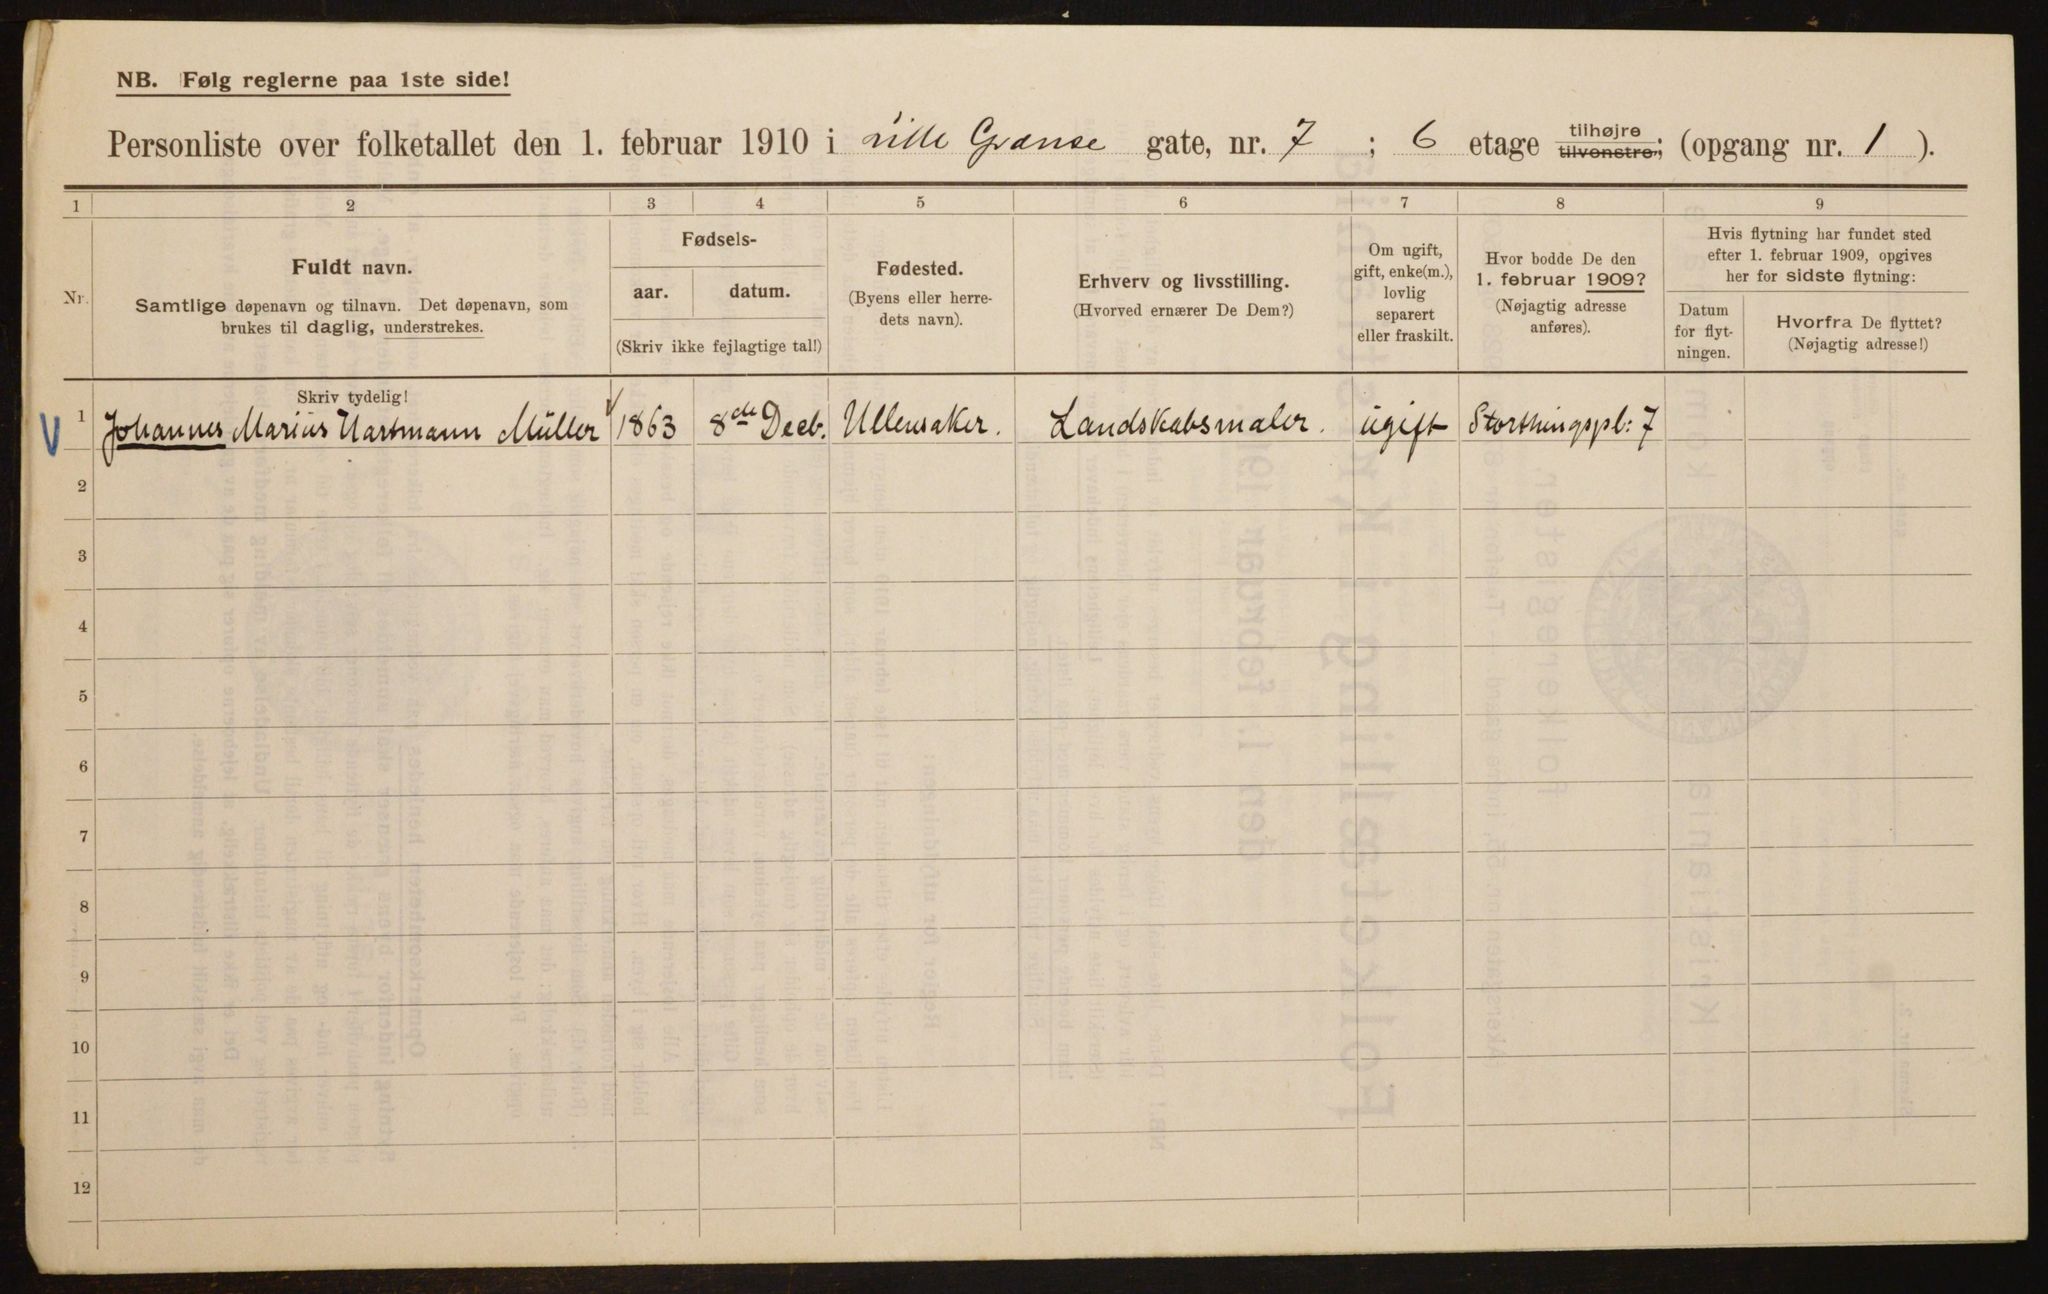 NB. Følg reglerne paa 1ste side!
Personliste over folketallet den 1. februar 1910 i Lille Grænse gate, nr. 7 ; 6 etage tilhøjre tilvenstre; (opgang nr. 1 ).
1 2 3 4 5 6 7 8 9
Nr.
Fuldt navn.
Samtlige døpenavn og tilnavn. Det døpenavn, som
brukes til daglig, understrekes.
Fødsels-
aar. datum.
(Skriv ikke fejlagtige tal!)
Fødested.
(Byens eller herre-
dets navn).
Erhverv og livsstilling.
(Hvorved ernærer De Dem?)
Om ugift,
gift, enke(m.),
lovlig
separert
eller fraskilt.
Hvor bodde De den
1. februar 1909?
(Nøjagtig adresse
anføres).
Hvis flytning har fundet sted
efter 1. februar 1909, opgives
her for sidste flytning:
Datum
for flyt-
ningen.
Hvorfra De flyttet?
(Nøjagtig adresse!)
Skriv tydelig!
1 Johannes Marius Hartmann Müller 1863 8de Decb. Ullensaker. Landskabsmaler. ugift Storthingspl: 7
2
3
4
5
6
7
8
9
10
11
12